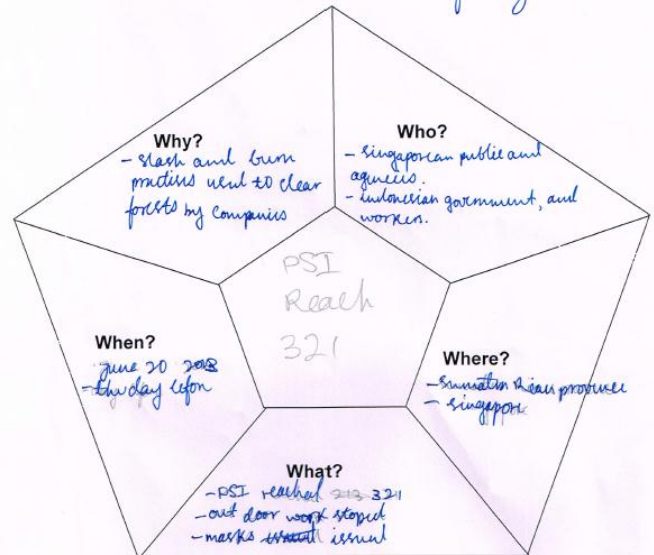 Why?
- slash and burn
practises used to clear
forests by companies
Who?
- singaporean public and
agencies.
- indonesian government, and
workers.
PSI
Reach
321
When?
june 20
- the day before
Where?
- Sumatra Riau province
- singapore
What?
- PSI reached 213 321
- out door work stoped
- masks issued issued